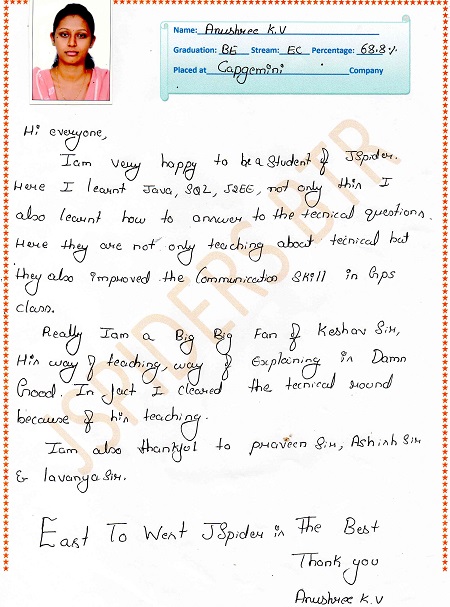 Name: Anushree K.V
Graduation: BE Stream: EC Percentage: 68.8%
Placed at Capgemini Company
Hi everyone,
Iam very happy to be a Student of JSpider.
Here I learnt Java, SQL, J2EE, not only this I
also learnt how to answer to the tecnical questions.
Here they are not only teaching about tecnical but
they also improved the Communication Skill in Gps
class.
Really Iam a Big Big Fan of Keshav Sir,
His way of teaching, way of Explaining is Damn
Good. In fact I cleared the tecnical round
because of his teaching.
Iam also thankful to praveen Sir, Ashish Sir
& lavanya Sir.
East To West JSpider is The Best
Thank you
Anushree K.V
JSPIDERS BTR